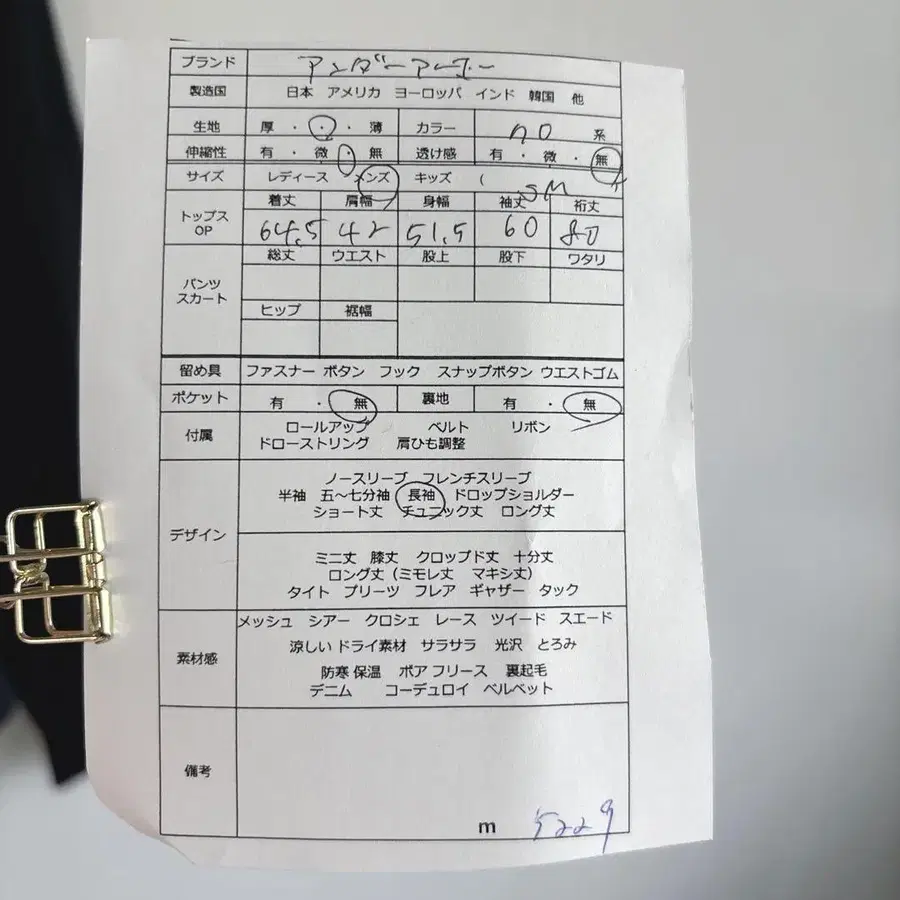 ブランド アンダーアーマー
製造国 日本 アメリカ ヨーロッパ インド 韓国 他
生地 厚 ・ ・ ・ 薄 カラー 系
伸縮性 有 ・ 微 ・ 無 透け感 有 ・ 微 ・ 無
サイズ レディース メンズ キッズ ( SM
トップス OP 着丈 肩幅 身幅 袖丈 裄丈
64.5 42 51.5 60 80
パンツ スカート 総丈 ウエスト 股上 股下 ワタリ
ヒップ 裾幅
留め具 ファスナー ボタン フック スナップボタン ウエストゴム
ポケット 有 ・ 無 裏地 有 ・ 無
付属 ロールアップ ベルト リボン
ドローストリング 肩ひも調整
デザイン
ノースリーブ フレンチスリーブ
半袖 五〜七分袖 長袖 ドロップショルダー
ショート丈 チュニック丈 ロング丈
ミニ丈 膝丈 クロップド丈 十分丈
ロング丈(ミモレ丈 マキシ丈)
タイト プリーツ フレア ギャザー タック
素材感
メッシュ シアー クロシェ レース ツイード スエード
涼しい ドライ素材 サラサラ 光沢 とろみ
防寒 保温 ボア フリース 裏起毛
デニム コーデュロイ ベルベット
備考
m 5229